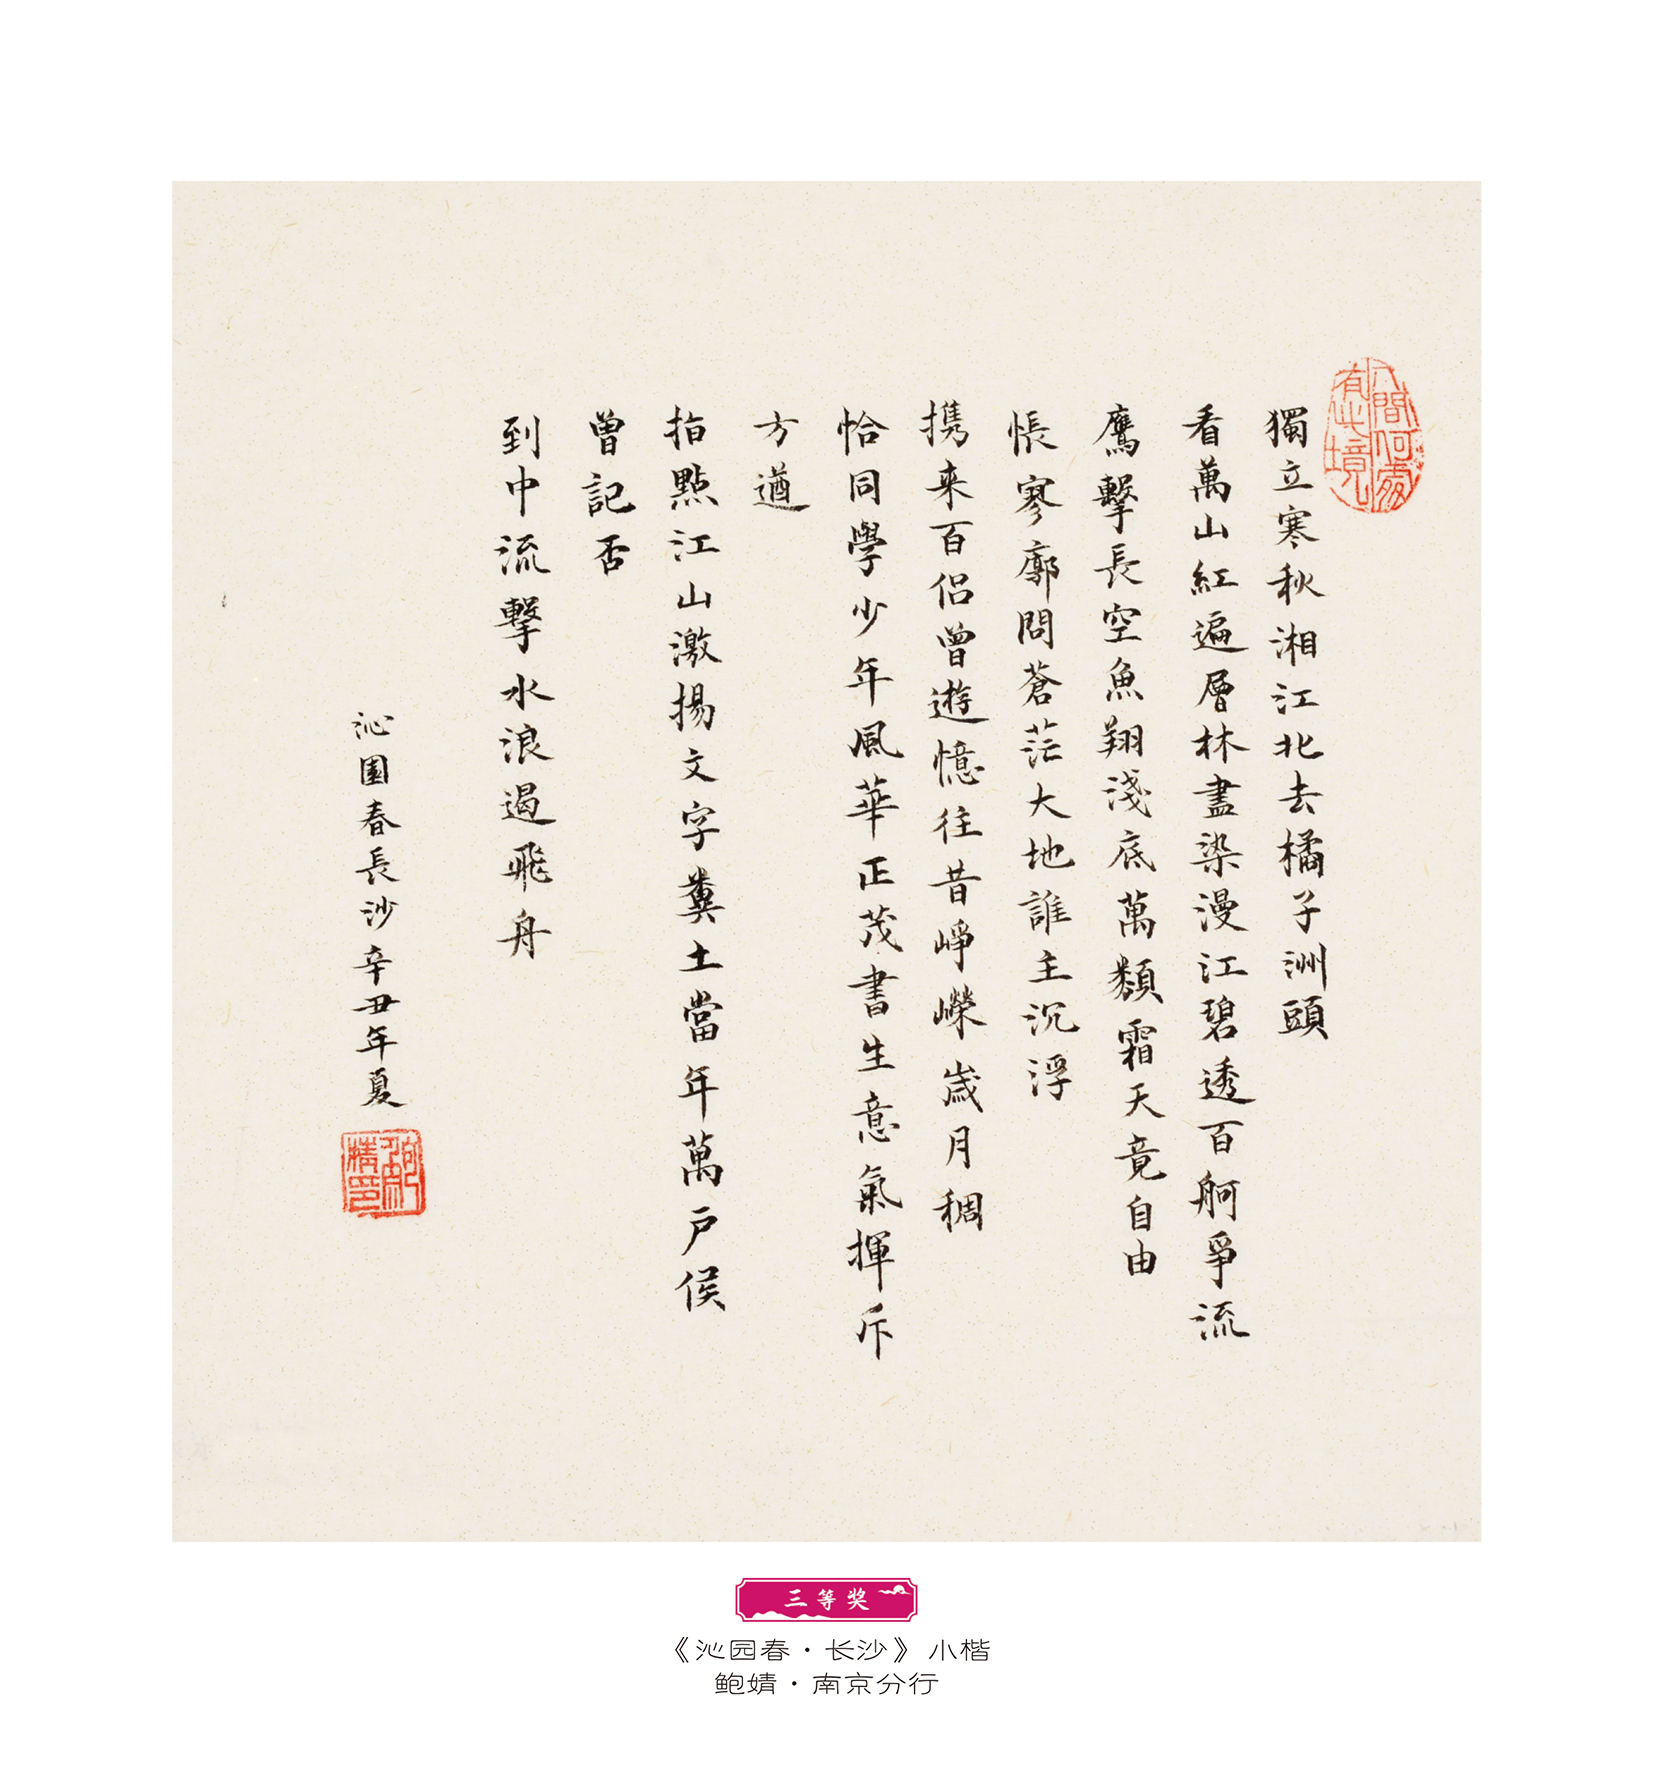 人間何處有此境
獨立寒秋湘江北去橘子洲頭
看萬山紅遍層林盡染漫江碧透百舸爭流
鷹擊長空魚翔淺底萬類霜天竟自由
悵寥廓問蒼茫大地誰主沉浮
携来百侣曾遊憶往昔崢嶸歲月稠
恰同學少年風華正茂書生意氣揮斥
方遒
指點江山激揚文字糞土當年萬戶侯
曾記否
到中流擊水浪遏飛舟
沁園春長沙辛丑年夏
三等奖
《沁园春·长沙》小楷
鲍婧·南京分行